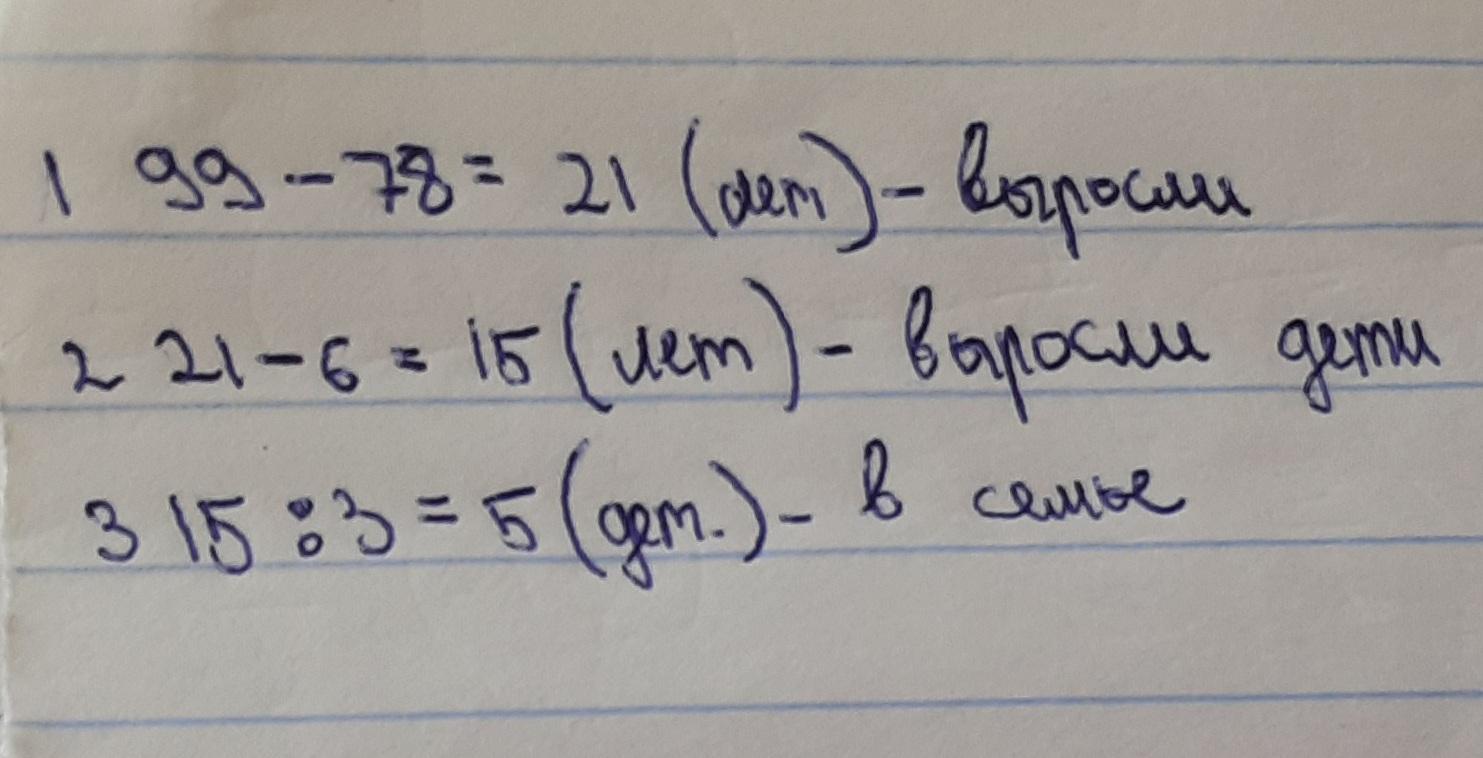 1 99 - 78 = 21 (лет) - выросли
2 21 - 6 = 15 (лет) - выросли дети
3 15 : 3 = 5 (дет.) - в семье